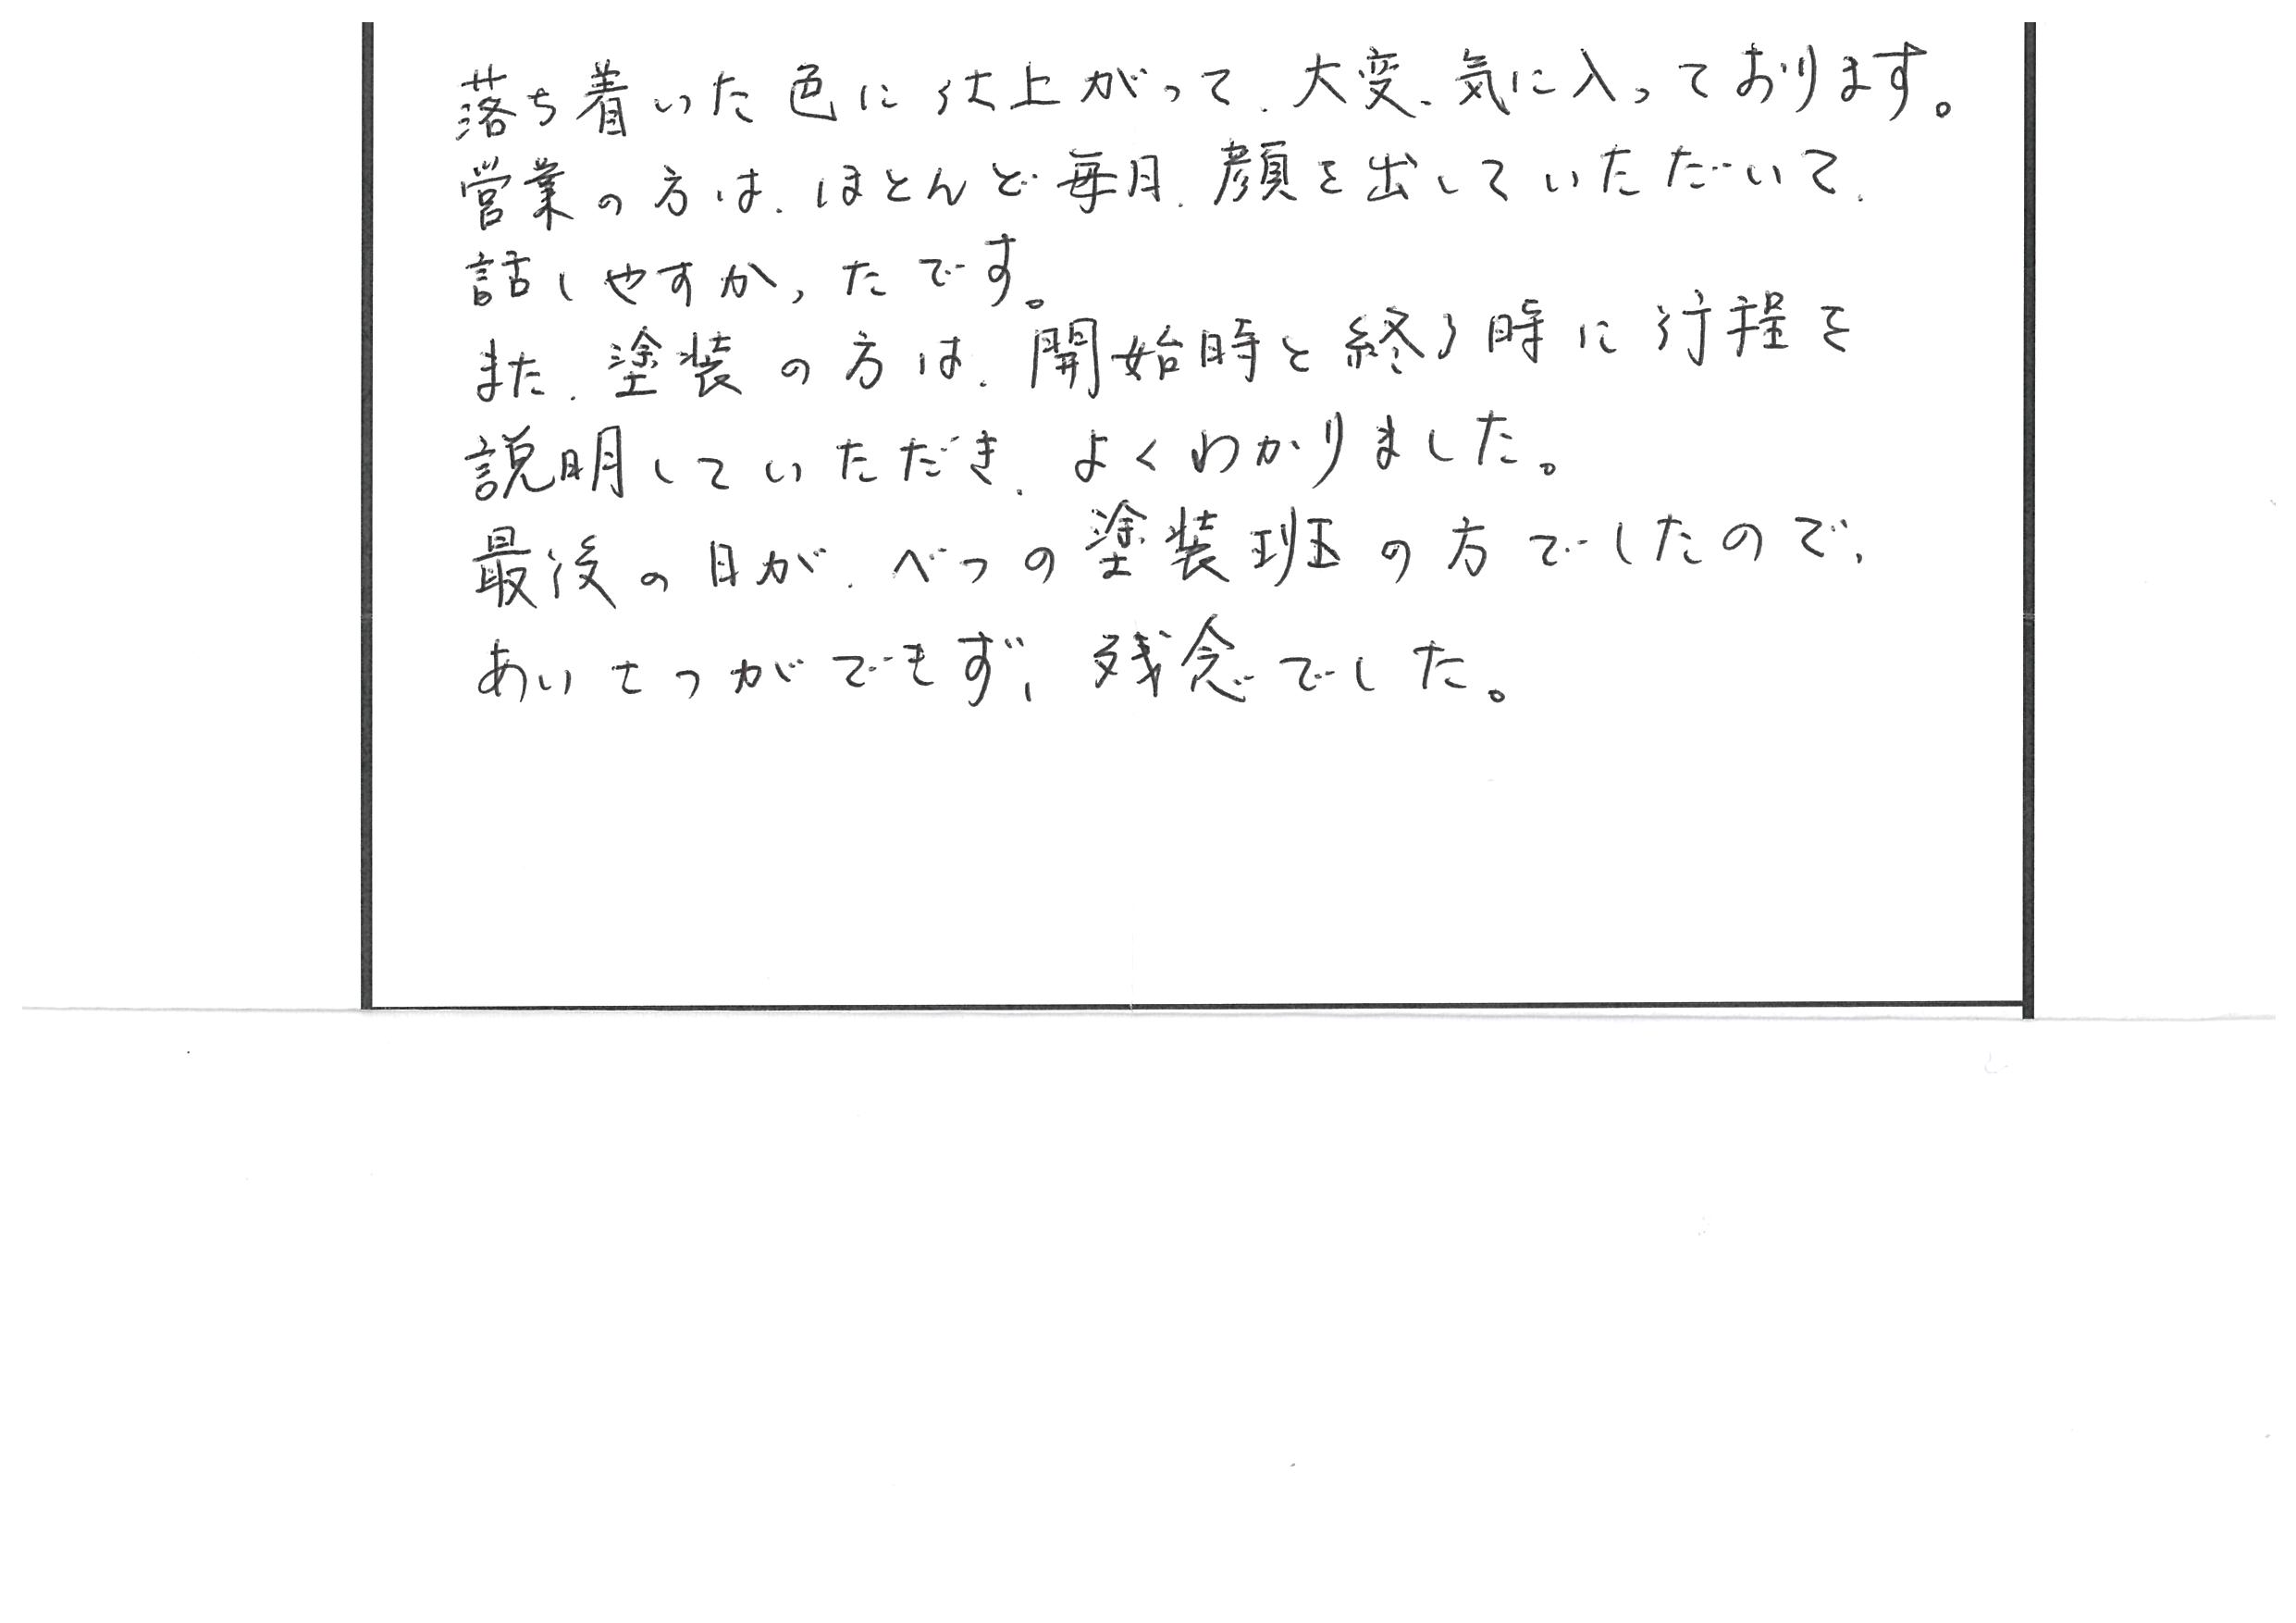 落ち着いた色に仕上がって、大変、気に入っております。
営業の方は、ほとんど毎月、顔を出していただいて、
話しやすかったです。
また、塗装の方は、開始時と終了時に行程を
説明していただき、よくわかりました。
最後の日が、べつの塗装班の方でしたので、
あいさつができず、残念でした。